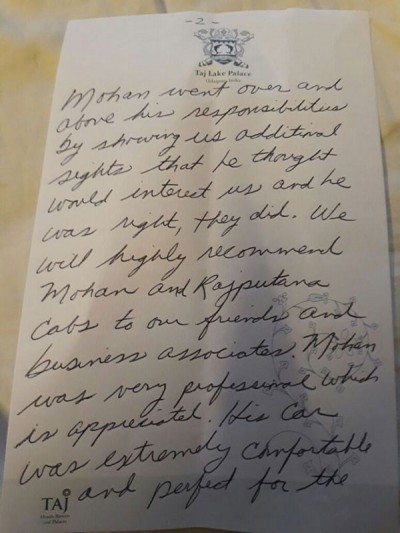 -2-
Taj Lake Palace
Udaipur, India
Mohan went over and
above his responsibilities
by showing us additional
sights that he thought
would interest us and he
was right, they did. We
will highly recommend
Mohan and Rajputana
Cabs to our friends and
business associates. Mohan
was very professional which
is appreciated. His car
was extremely comfortable
and perfect for the
TAJ
Hotels Resorts
and Palaces